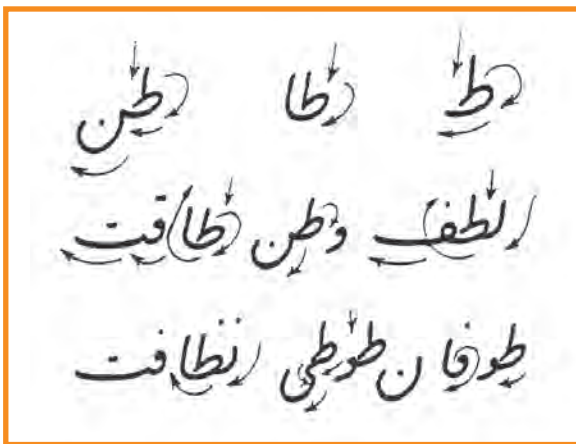 ط طا طن
لطف وطن طاقت
طوفان طوطی نظافت